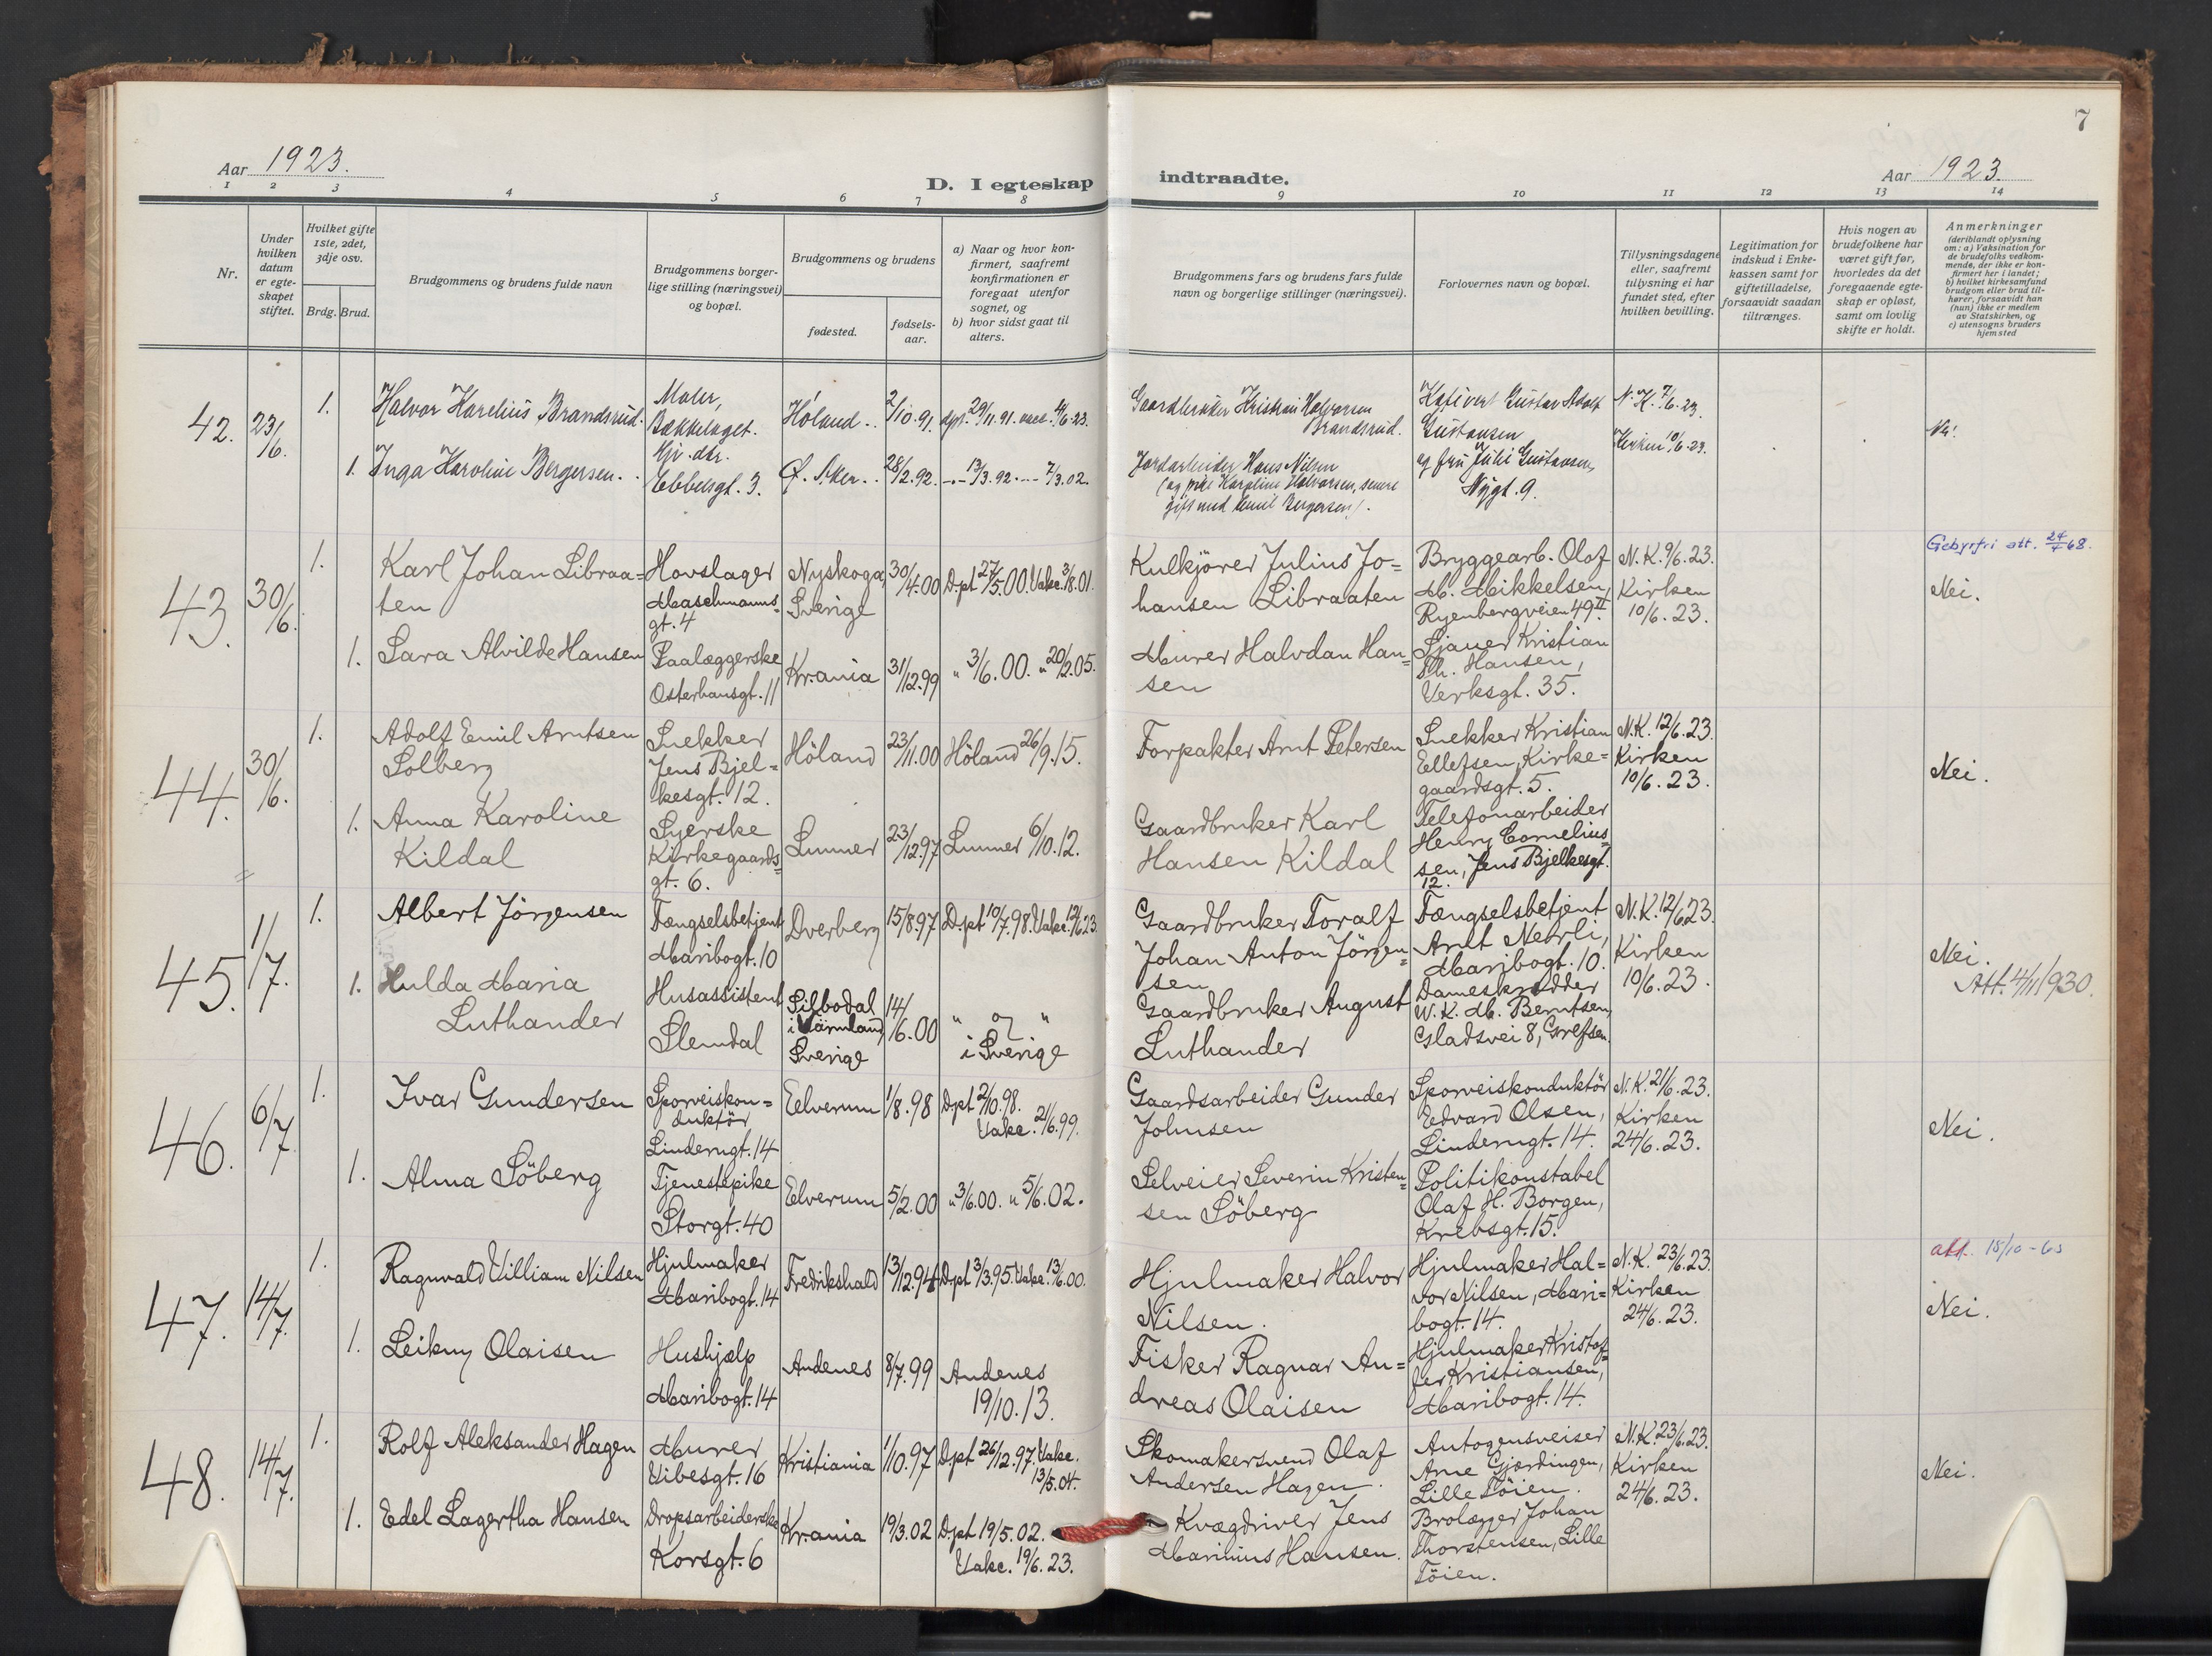 7
Aar 1923.
D. I egteskap indtraadte.
Aar 1923.
1 2 3 4 5 6 7 8 9 10 11 12 13 14
Nr.
Under hvilken datum er egteskapet stiftet.
Hvilket gifte 1ste, 2det, 3dje osv.
Brdg. Brud.
Brudgommens og brudens fulde navn
Brudgommens borgerlige stilling (næringsvei) og bopæl.
Brudgommens og brudens
fødested.
fødselsaar.
a) Naar og hvor konfirmert, saafremt konfirmationen er foregaat utenfor sognet, og
b) hvor sidst gaat til alters.
Brudgommens fars og brudens fars fulde navn og borgerlige stillinger (næringsvei).
Forlovernes navn og bopæl.
Tillysningsdagene eller, saafremt tillysning ei har fundet sted, efter hvilken bevilling.
Legitimation for indskud i Enkekassen samt for giftetilladelse, forsaavidt saadan tiltrænges.
Hvis nogen av brudefolkene har været gift før, hvorledes da det foregaaende egteskap er opløst, samt om lovlig skifte er holdt.
Anmerkninger
(deriblandt oplysning om: a) Vaksination for de brudefolks vedkommende, der ikke er konfirmert her i landet;
b) hvilket kirkesamfund brudgom eller brud tilhører, forsaavidt han (hun) ikke er medlem av Statskirken, og
c) utensogns bruders hjemsted
42. 23/6. 1. Halvor Karelius Brandsrud.
Maler, Bækkelaget.
Høland.. 2/10.91. dpt. 29/11.91. vacc. 4/6.23.
Gaardbruker Kristian Halvorsen Brandsrud.
Gustav Adolf Gustavsen
og fru Julie Gustavsen, Nygt. 9.
N. K. 7/6.23.
Kirken 10/6.23.
1. Inga Karoline Bergersen..
Ebbelsgt. 3.
Ø. Aker.. 28/2.92. -"- 13/3.92. -- 7/3.02.
Jordarbeider Hans Nilsen
(og pike Karoline Halvorsen, senere
gift med Emil Bergersen).
43. 30/6. 1. Karl Johan Libraa=
ten
Hovslager
Maschmanns=
gt. 4
Nyskoga
Sverige
30/4.00 Dpt 27/5.00. Vakc. 3/8.01.
Kulkjører Julius Jo=
hansen Libraaten
Bryggearb. Olaf
M. Mikkelsen,
Ryenbergveien 49 II
N. K. 9/6.23.
Kirken
10/6.23.
Gebyrfri att. 24/4 68.
Nei.
1. Sara Alvilde Hansen
Paalæggerske
Osterhausgt. 11
Kr.ania 31/12.99 " 3/6.00. " 20/2.05.
Murer Halvdan Han=
sen
Sjauer Kristian
Hansen,
Verksgt. 35.
44. 30/6. 1. Adolf Emil Arntsen
Solberg
Snekker
Jens Bjel=
kesgt. 12.
Höland 23/11.00 Höland 26/9.15.
Forpakter Arnt Petersen
Snekker Kristian
Ellefsen, Kirke=
gaardsgt. 5.
N.K. 12/6.23.
Kirken
10/6.23.
Nei.
1. Anna Karoline
Kildal
Syerske
Kirkegaards=
gt. 6.
Lunner 23/12.97 Lunner 6/10.12.
Gaardbruker Karl
Hansen Kildal
Telefonarbeider
Henry Cornelius=
sen, Jens Bjelkesgt.
12.
45. 1/7. 1. Albert Jörgensen
Fængselsbetjent
Maribogt. 10
Dverberg 15/8.97 Dpt 10/7.98. Vakc. 12/6.23.
Gaardbruker Toralf
Johan Anton Jörgen=
sen
Fængselsbetjent
Arnt Neerli,
Maribogt. 10.
N. K. 12/6.23.
Kirken
10/6.23.
Nei.
Att. 4/11 1930.
1. Hulda Maria
Luthander
Husassistent
Slemdal
Silbodal
i Värmland
Sverige
14/6.00
" og "
i Sverige
Gaardbruker August
Luthander
Dameskrædder
W. K. M. Berntsen,
Gladsvei 8, Grefsen.
46. 6/7 1. Ivar Gundersen
Sporveiskon=
duktör
Linderngt. 14
Eelverum 1/8.98 Dpt 2/10.98.
Vakc. 21/6.99.
Gaardsarbeider Gunder
Johnsen
Sporveiskonduktör
Edvard Olsen,
Linderngt. 14.
N. K. 21/6.23.
Kirken
24/6.23.
Nei.
1. Alma Söberg
Tjenestepike
Storgt. 40
Eelverum 5/2.00 " 3/6.00. " 5/6.02.
Selveier Severin Kristen=
sen Söberg
Politikonstabel
Olaf H. Borgen,
Krebsgt. 15.
47. 14/7. 1. Ragnvald Villiam Nilsen
Hjulmaker
Maribogt. 14
Fredrikshald 13/12.94 Dpt 3/3.95. Vakc. 13/6.00.
Hjulmaker Halvor
Nilsen.
Hjulmaker Hal=
vor Nilsen, Mari=
bogt. 14.
N. K. 23/6.23.
Kirken
24/6.23.
att. 15/10-63
Nei.
1. Leikny Olaisen
Hushjælp
Maribogt. 14
Andenes 8/7.99 Andenes
19/10.13.
Fisker Ragnar An=
dreas Olaisen
Hjulmaker Kristof=
fer Kristiansen,
Maribogt. 14.
48. 14/7. 1. Rolf Aleksander Hagen
Murer
Vibesgt. 16
Kristiania 1/10.97 Dpt 26/12.97. Vakc.
13/5.04.
Skomakersvend Olaf
Andersen Hagen.
Autogensveiser
Arne Gjærdingen,
Lille Töien.
N.K. 23/6.23.
Kirken
24/6.23.
Nei.
1. Edel Lagertha Hansen
Dropsarbeiderske
Korsgt. 6
Kr.ania 19/3.02 Dpt 19/5.02.
Vakc. 19/6.23.
Kvægdriver Jens
Marinius Hansen.
Brolægger Johan
Thorstensen, Lille
Töien.